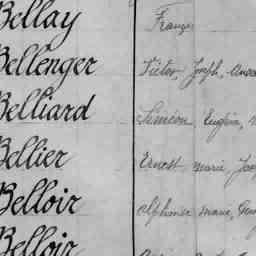 Bellay Françoi
Bellenger Victor, Joseph,
Belliard Siméon, Eugène,
Bellier Ernest marie, Jose
Belloir Alphonse marie,
Belloir